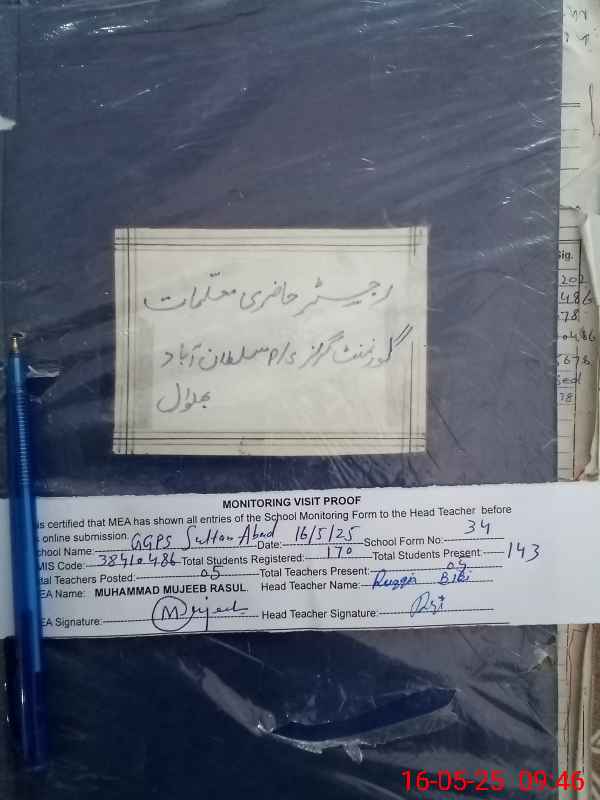 رجیسٹر حاضری معلمات
گورنمنٹ گرلز پ/س سلطان آباد
بھلوال
MONITORING VISIT PROOF
is certified that MEA has shown all entries of the School Monitoring Form to the Head Teacher before
online submission.
chool Name: GGPS Sultan Abad Date: 16/5/25 School Form No: 34
MIS Code: 38410486 Total Students Registered: 170 Total Students Present: 143
tal Teachers Posted: 05 Total Teachers Present: 04
EA Name: MUHAMMAD MUJEEB RASUL. Head Teacher Name: Ruqqia BiBi
EA Signature: Mujeeb Head Teacher Signature:
Sig.
202
486
78
0486
5678
sed
78
16-05-25 09:46